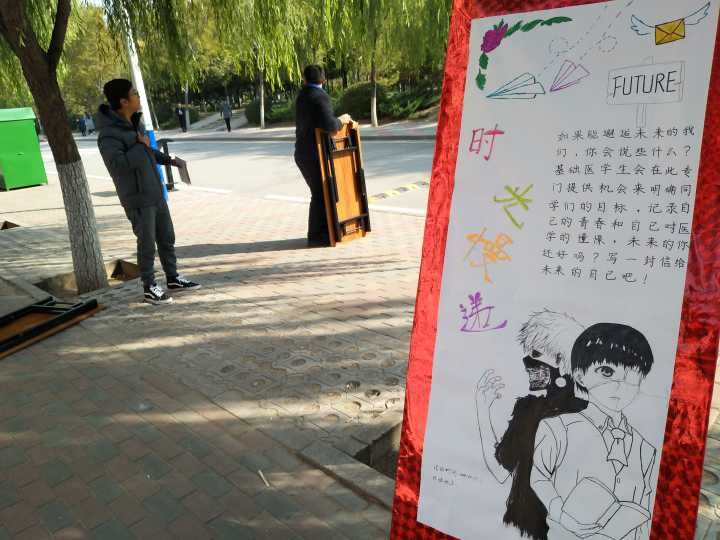 FUTURE
时光慢递
如果能邂逅未来的我
们，你会说些什么？
基础医学生会在此专
门提供机会来明确同
学们的目标，记录自
己的青春和自己对医
学的憧憬，未来的你
还好吗？写一封信给
未来的自己吧！